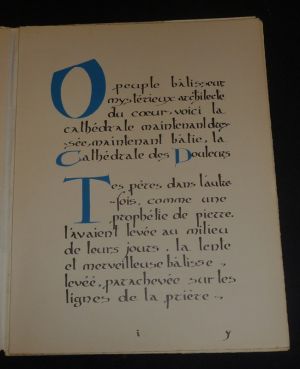 O peuple bâtisseur
mystérieux architecte
du cœur, voici la
cathédrale maintenant dres-
sée, maintenant bâtie, la
Cathédrale des Douleurs
Tes pères, dans l'autre-
fois, comme une
prophétie de pierre,
l'avaient levée au milieu
de leurs jours. la lente
et merveilleuse bâtisse
levée, parachevée sur les
lignes de la prière.
i y